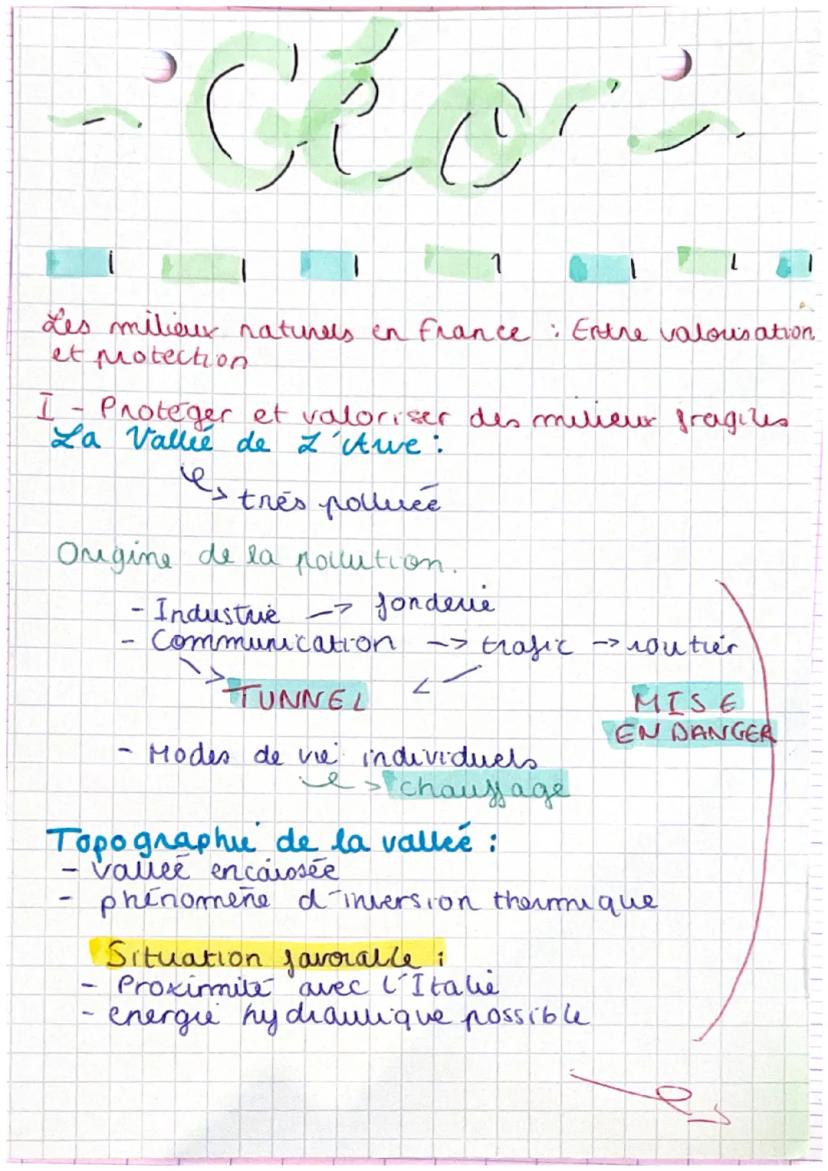 Géo
Les milieux naturels en France : Entre valorisation
et protection
I - Protéger et valoriser des milieux fragiles
La Vallée de L'Arve :
très polluée
Origine de la pollution.
- Industrie -> fonderie
- Communication -> trafic -> routier
TUNNEL
MISE
EN DANGER
- Modes de vie individuels
-> chauffage
Topographie de la vallée :
- vallée encaissée
- phénomène d'inversion thermique
Situation favorable :
- Proximité avec l'Italie
- energie hydraulique possible